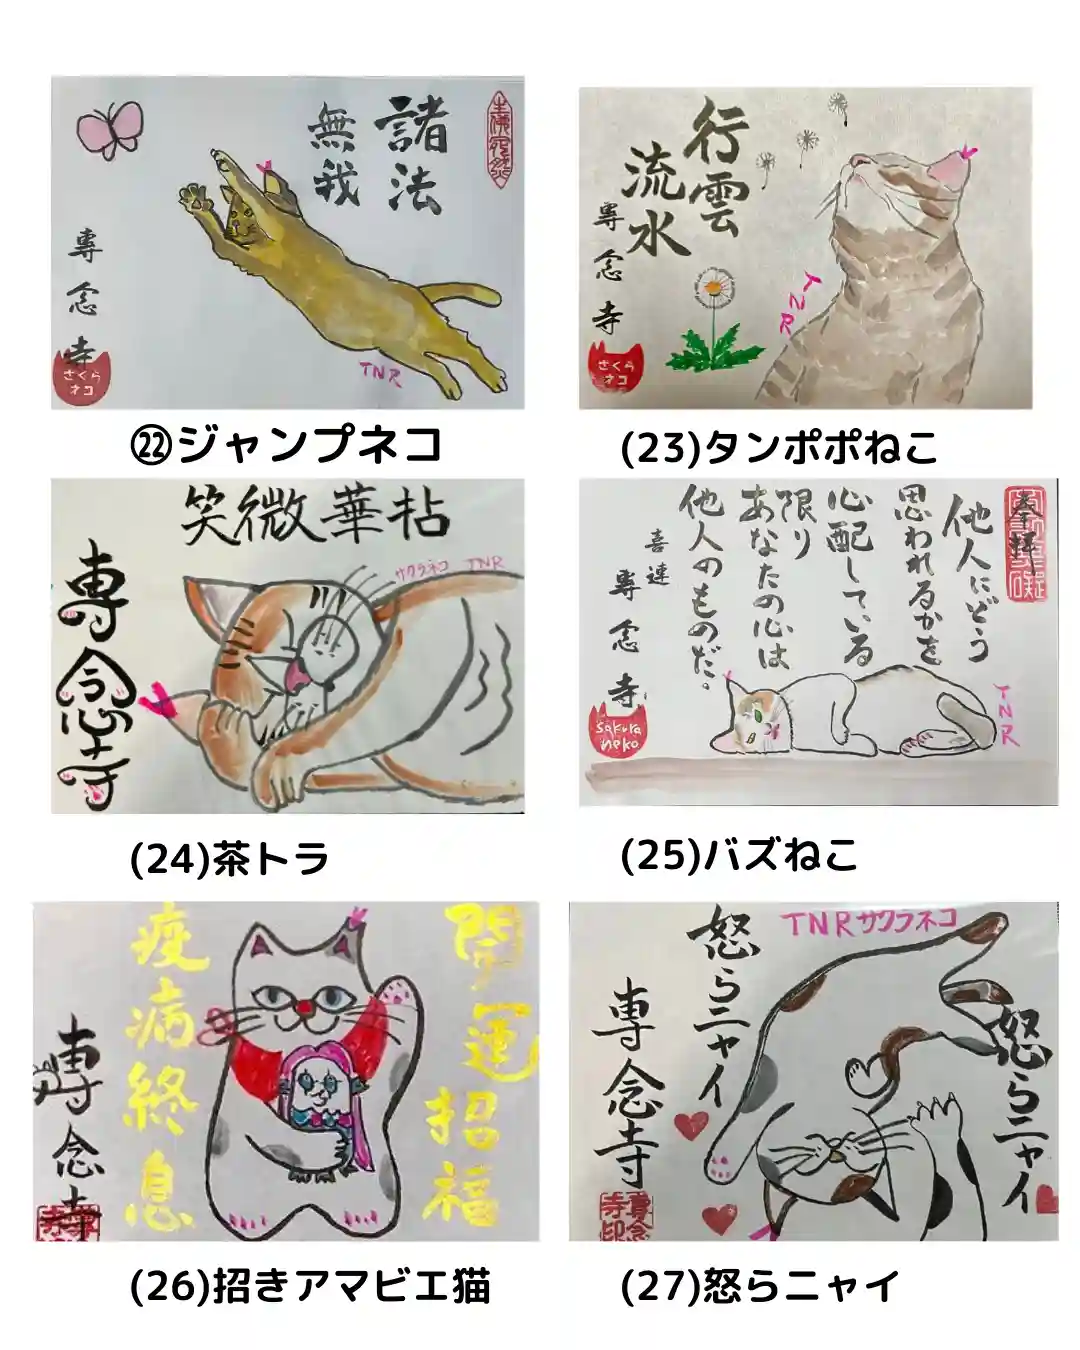 諸法
無我
専念寺
さくら
ネコ
TNR
㉒ジャンプネコ
行雲
流水
専念寺
さくら
ネコ
TNR
(23)タンポポねこ
笑微華拈
サクラネコ TNR
専念寺
(24)茶トラ
奉拝
他人にどう
思われるかを
心配している
限り
あなたの心は
他人のものだ。
喜連
専念寺
sakura
neko
TNR
(25)バズねこ
開運招福
疫病終息
専念寺
(26)招きアマビエ猫
TNRサクラネコ
怒らニャイ
怒らニャイ
専念寺
(27)怒らニャイ